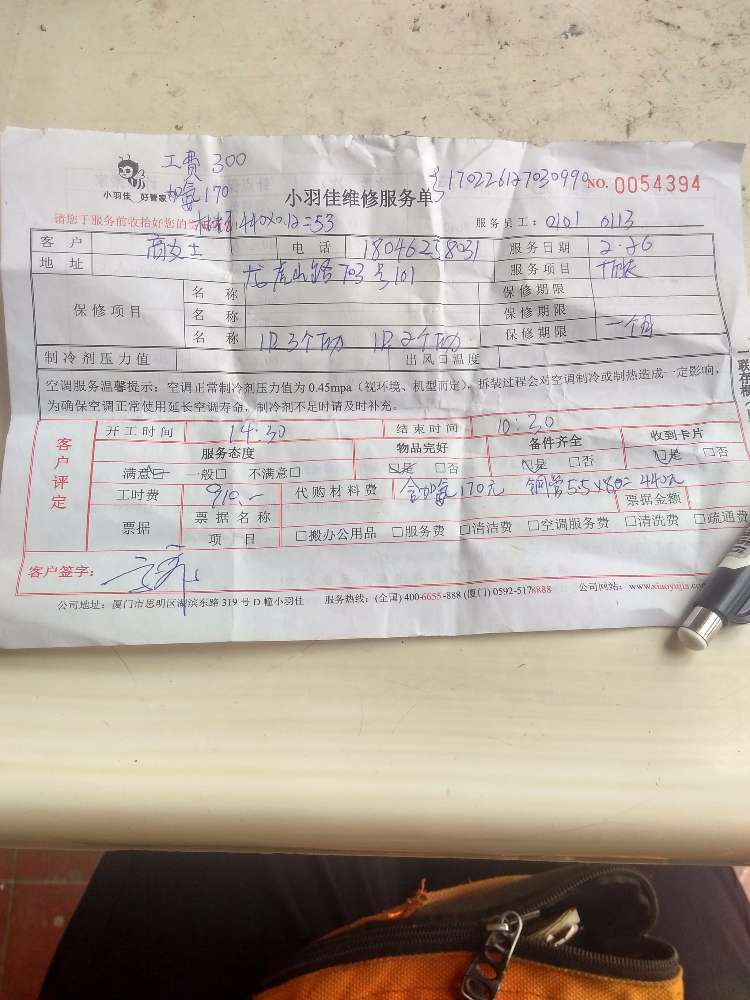 工费 300
加氟170
号170226127030990 NO. 0054394
小羽佳 好管家
小羽佳维修服务单
请您于服务前收拾好您的 材料:440×0.12=53 服务员工：0101 0113
客户 商女士 电话 18046238031 服务日期 2.26
地址 龙虎山路703号101 服务项目
保修项目 名称 保修期限
名称 保修期限
名称 1P 3个 1P 2个 保修期限 一个月
制冷剂压力值 出风口温度
空调服务温馨提示：空调正常制冷剂压力值为 0.45mpa（视环境、机型而定），拆装过程会对空调制冷或制热造成一定影响，
为确保空调正常使用延长空调寿命，制冷剂不足时请及时补充。
客户评定
开工时间 14:30 结束时间 10:30
服务态度 物品完好 备件齐全 收到卡片
满意□ 一般□ 不满意□ □是 □否 □是 □否 □是 □否
工时费 910.- 代购材料费 含加氟170元 铜管5.5×80=440元
票据 票据名称 票据金额
项目 □搬办公用品 □服务费 □清洁费 □空调服务费 □清洗费 □疏通费
客户签字：
公司地址：厦门市思明区湖滨东路 319 号 D 幢小羽佳 服务热线：(全国) 400-6655-888 (厦门) 0592-5178888 公司网站：www.xiaoyujia.com
联存根